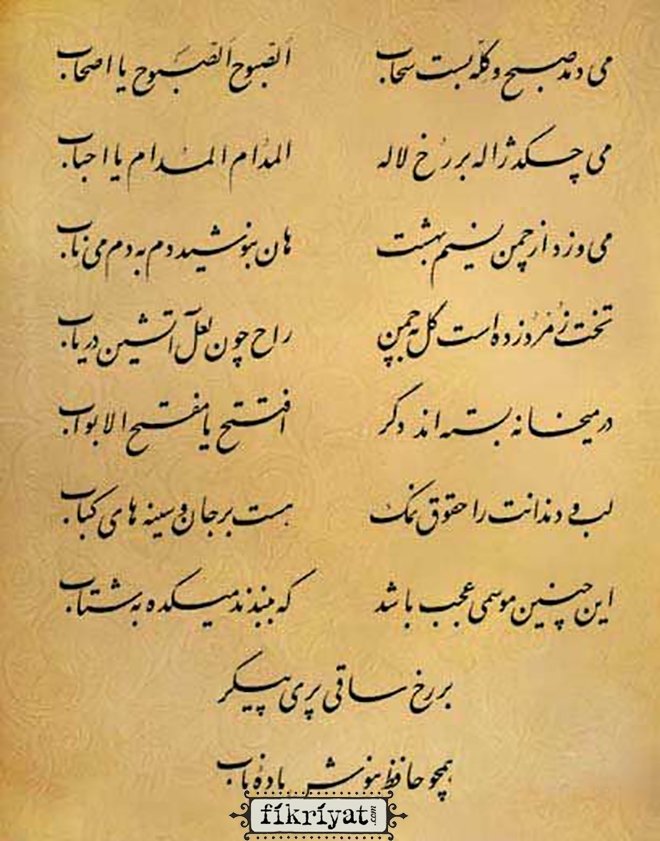 می دمد صبح و کلّه بست سحاب    الصّبوح الصّبوح یا اصحاب
می چکد ژاله بر رخ لاله    المدام المدام یا احباب
می وزد از چمن نسیم بهشت    هان بنوشید دم به دم می ناب
تخت زمرد زده است گل به چمن    راح چون لعل آتشین دریاب
در میخانه بسته اند دگر    افتتح یا مفتح الابواب
لب و دندانت را حقوق نمک    هست بر جان و سینه های کباب
این چنین موسمی عجب باشد    که ببندند میکده به شتاب
بر رخ ساقی پری پیکر
همچو حافظ بنوش باده ناب
fikriyat.com